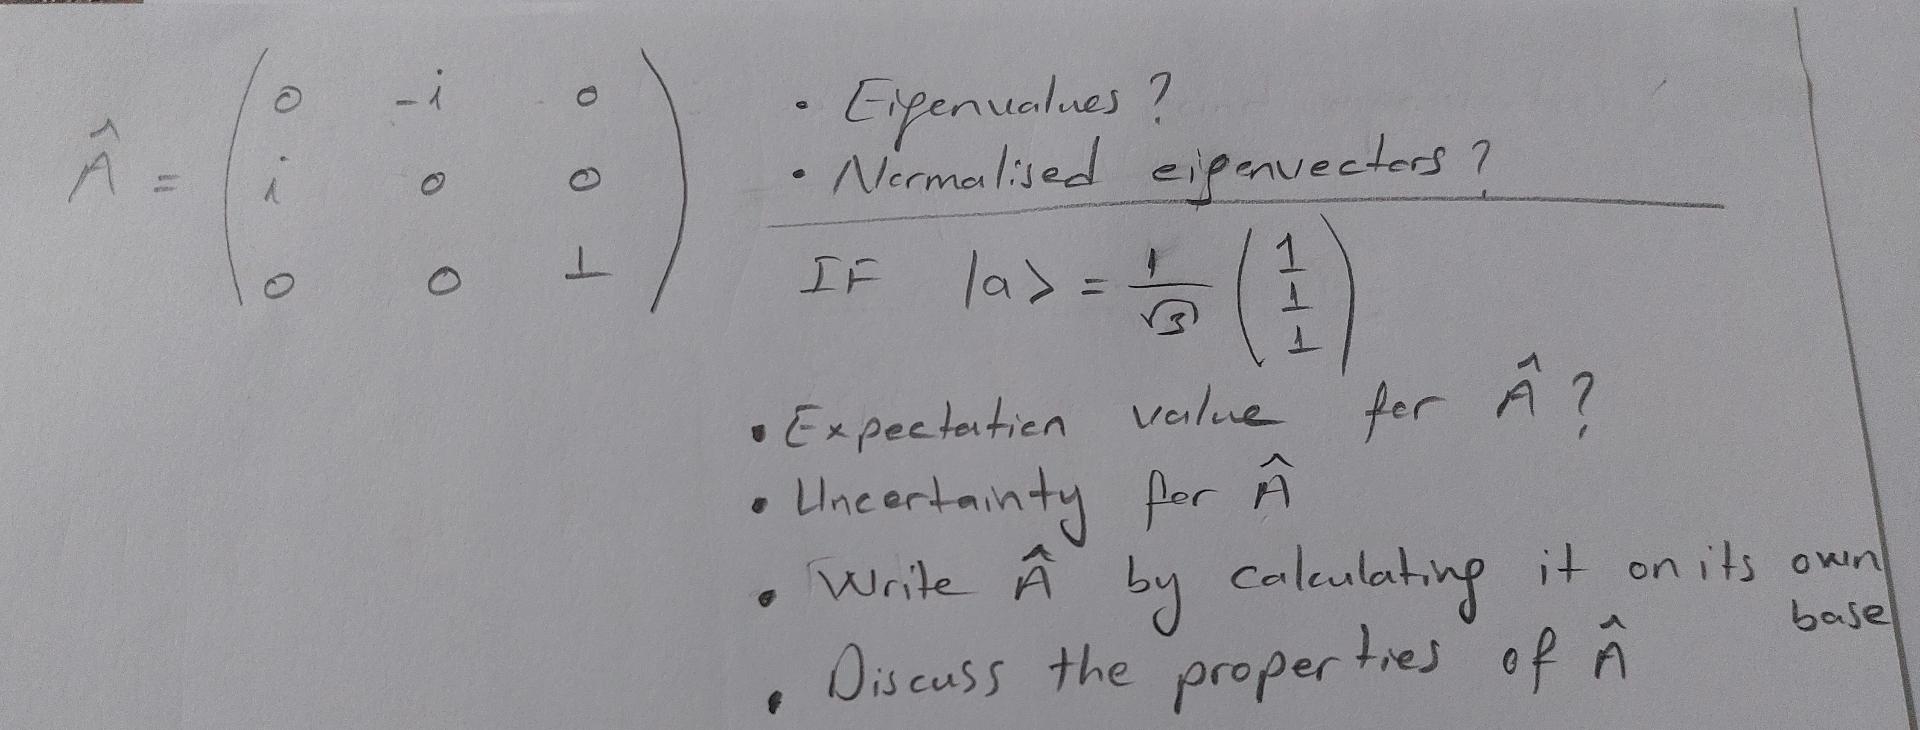 Â = ( 0 -i 0
i 0 0
0 0 1 )
• Eigenvalues?
• Normalised eigenvectors?
IF |a> = 1/√3 ( 1
1
1 )
• Expectation value for Â?
• Uncertainty for Â
• Write Â by calculating it on its own
base
• Discuss the properties of Â